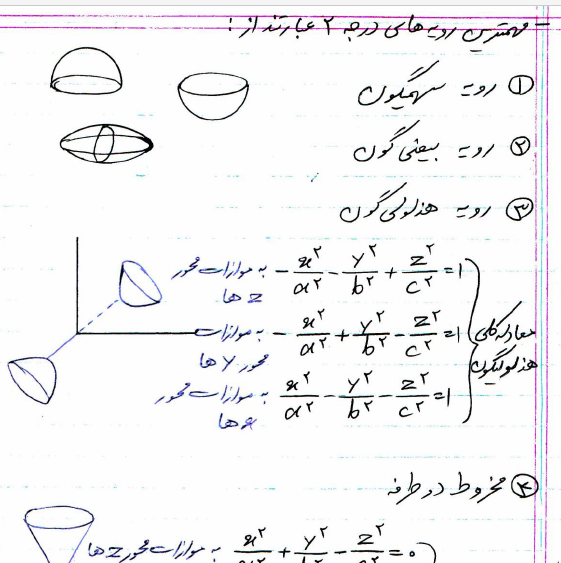 مهمترین رویه های درجه ۲ عبارتند از :
① رویه سهمیگون
② رویه بیضی گون
③ رویه هذلولی گون
معادله کلی هذلولیگون
-x²/a² - y²/b² + z²/c² = ۱ به موازات محور z ها
-x²/a² + y²/b² - z²/c² = ۱ به موازات محور y ها
x²/a² - y²/b² - z²/c² = ۱ به موازات محور x ها
④ مخروط دو طرفه
x²/a² + y²/b² - z²/c² = ۰ به موازات محور z ها